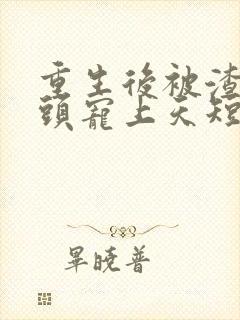 重生後被渣
頭寵上天短
畢曉普